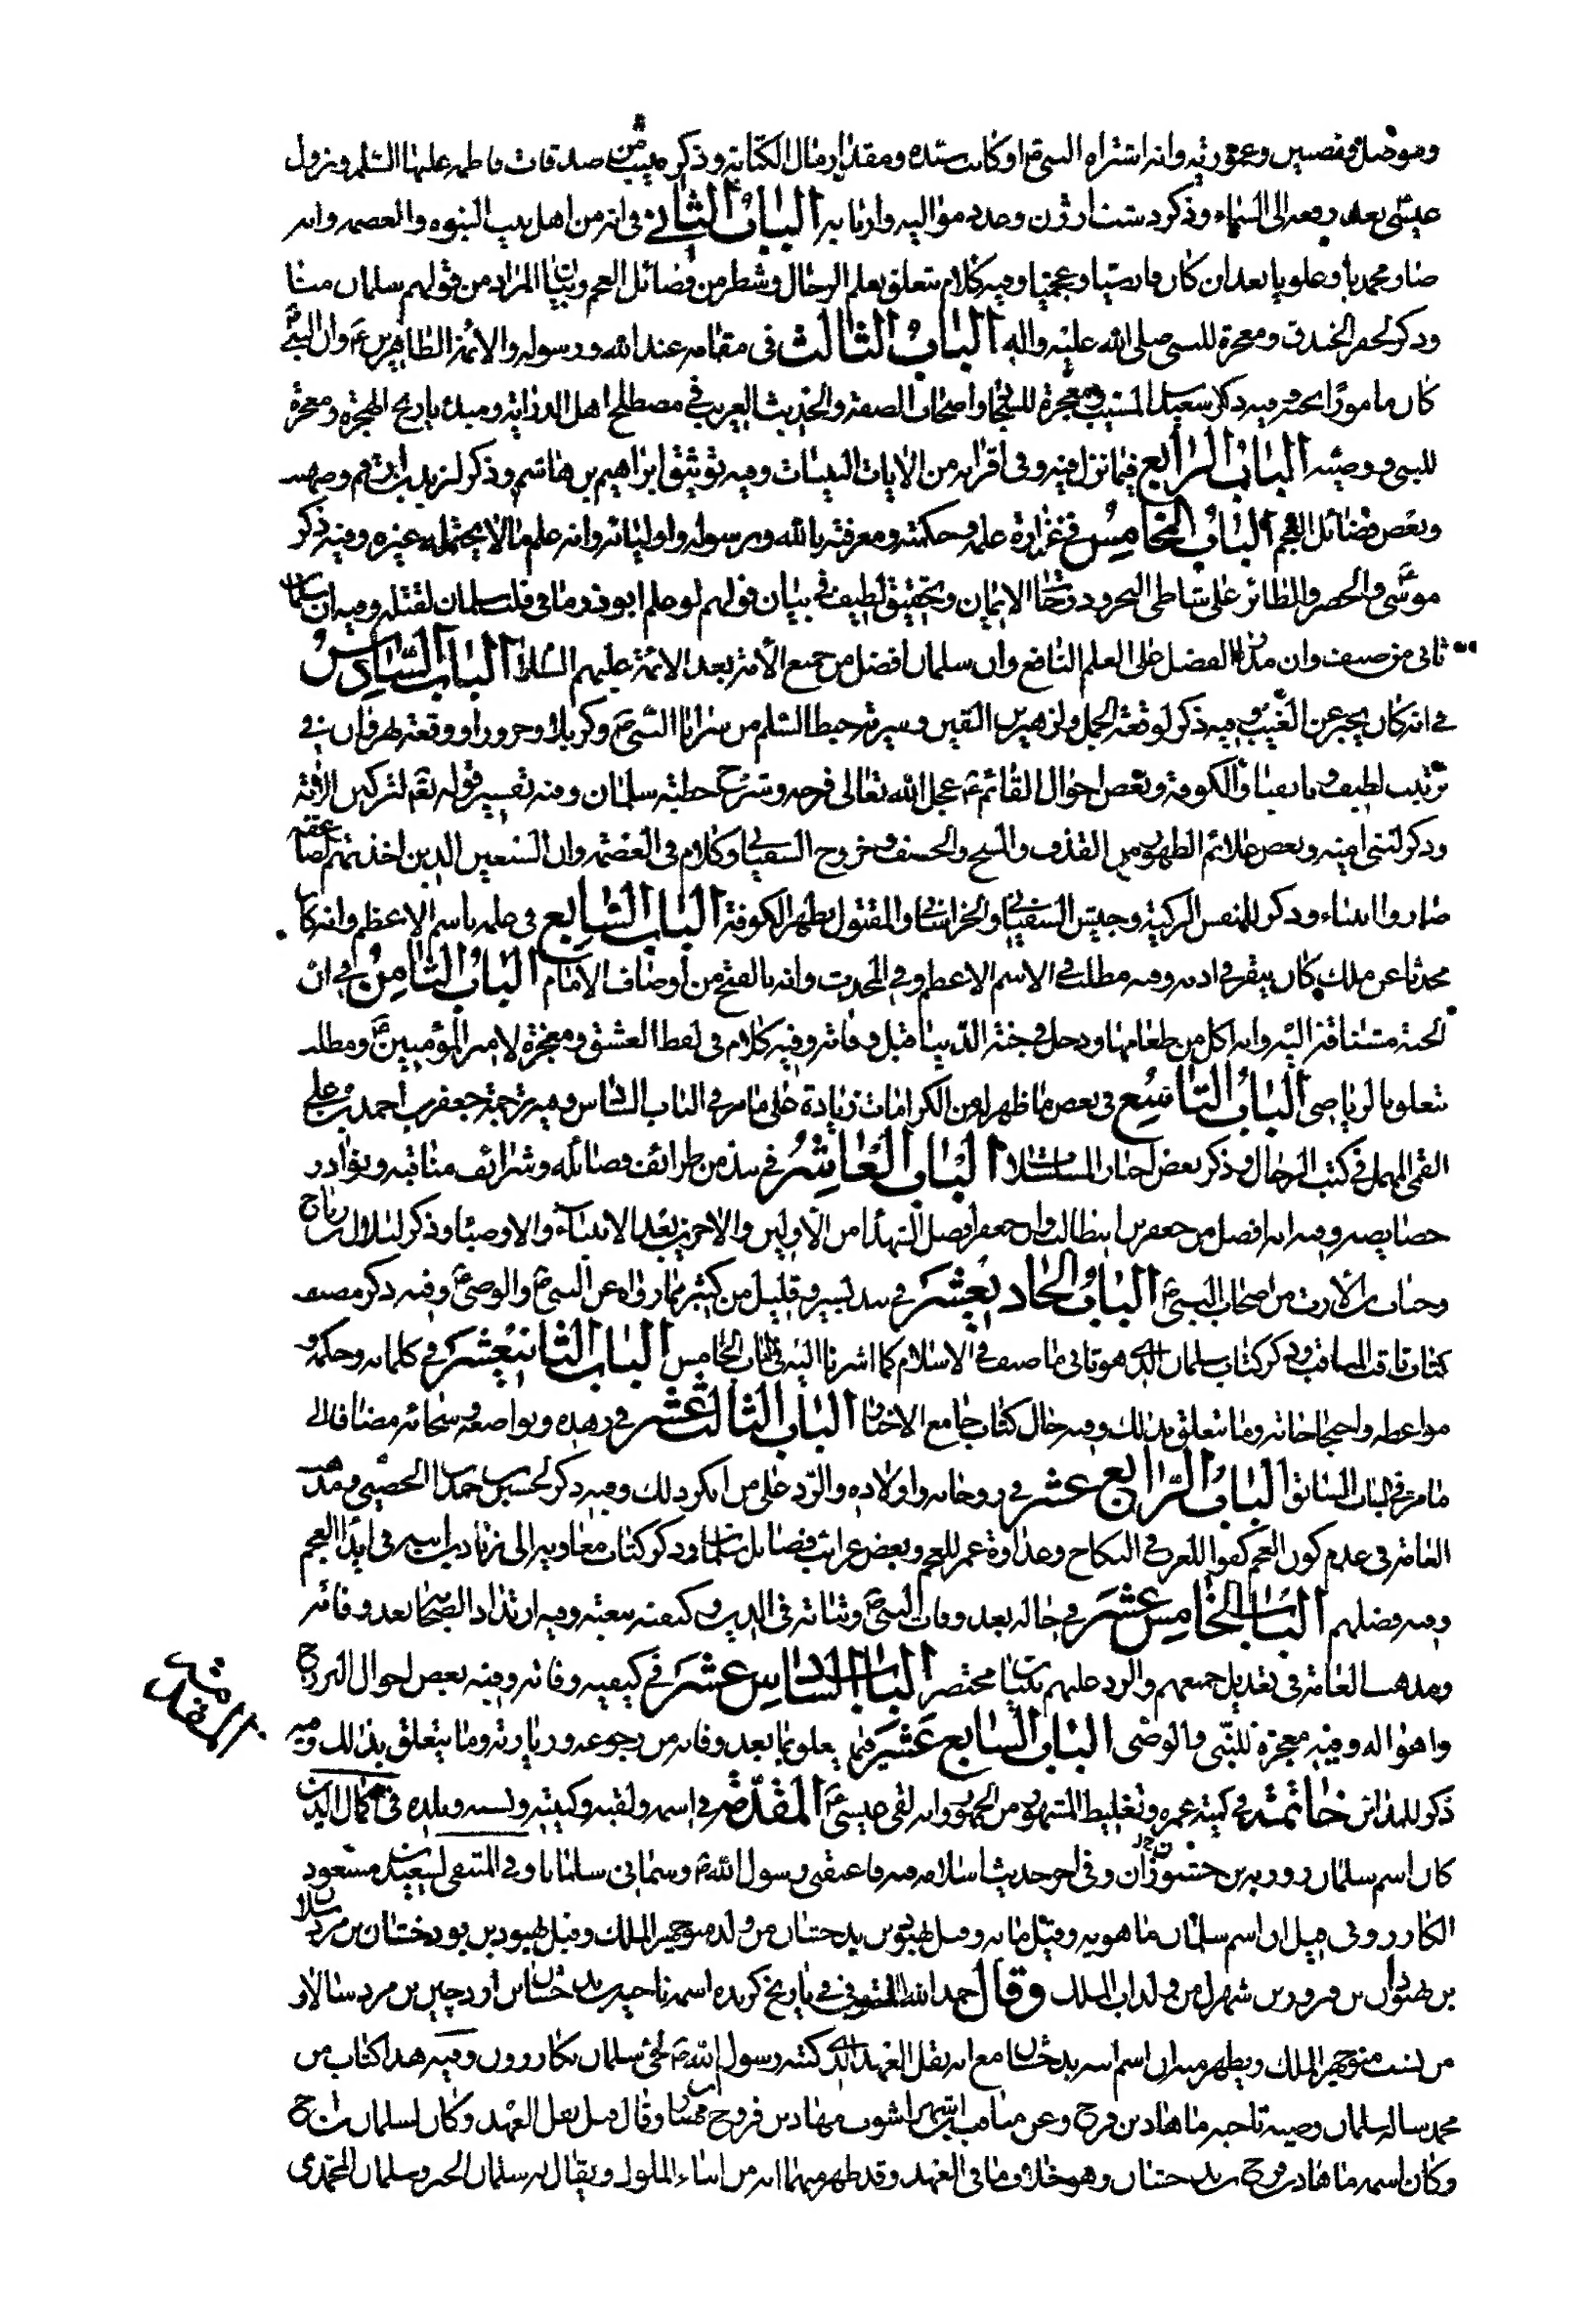 وموصل ونصيبين وعمورية وانه اشتراه النبي ص او كاتب سيده ومقدار مال الكتابة وذكر ميثب من صدقات فاطمه عليها السلم ونزول
عيسى بعد رفعه الى السماء وذكر دشت ارژن وعدد مواليه واربابه الباب الثاني في انه من اهل بيت النبوه والعصمه وانه
صار محمديا وعلويا بعد ان كان فارسيا وعجميا وفيه كلام يتعلق بعلم الرجال وشطر من فضائل العجم وبيان المراد من قولهم سلمان منا
وذكر لحفر الخندق ومعجزة للنبي صلى الله عليه واله الباب الثالث في مقامه عند الله ورسوله والائمة الطاهرين ع وان النبي ص
كان مامورا بحبه وفيه ذكر سعيد بن المسيب ومعجزة للسجاد واصحاب الصفة والحديث الغريب في مصطلح اهل الدراية ومبدء تاريخ الهجرة ومعجزة
للنبي ووصيه الباب الرابع فيما نزل فيه وفي اقرانه من الايات البينات وفيه توثيق ابراهيم بن هاشم وذكر لزيد بن ارقم وصهيب
وبعض فضائل العجم الباب الخامس في غزارة علمه وحكمته ومعرفته بالله وبرسوله واوليائه وانه علم ما لا يحتمله غيره وفيه ذكر
موسى والخضر والطائر على شاطى البحر ودرجات الايمان وتحقيق لطيف في بيان قولهم لو علم ابوذر ما في قلب سلمان لقتله وفيه ان سلمان
ثاني من صنف وان مدار الفضل على العلم النافع وان سلمان افضل من جميع الامة بعد الائمة عليهم السلام الباب السادس
في انه كان يخبر عن الغيب وفيه ذكر لوقعة الجمل ولزهير بن القين وسيرة خبط السلم من سرايا النبي ص وكربلا وحرورا ووقعة نهروان في
ترتيب لطيف وبانقيا والكوفة وبعض احوال القائم ع عجل الله تعالى فرجه وشرح خطبة سلمان ومنه تفسير قوله تعم لتركبن الاية
وذكر لبني امية وبعض علائم الظهور من القذف والمسخ والخسف وخروج السفياني وكلام في العصمة وان السبعين الذين اخذتهم الصاعقة
صاروا انبياء وذكر للنفس الزكية وجيش السفياني والخراساني والمقتول بظهر الكوفة الباب السابع في علمه باسم الاعظم وانه كان
محدثا عن ملك كان ينقر في اذنه وفيه مطلب في الاسم الاعظم وفي المحدث وانه بالفتح من اوصاف الامام الباب الثامن في ان
الجنة مشتاقة اليه وانه اكل من طعامها ودخل في جنة الدنيا قبل وفاته وفيه كلام في لفظ العشق ومعجزة لامير المؤمنين ع ومطلب
يتعلق بالرياضى الباب التاسع في بعض ما ظهر له من الكرامات زيادة على ما مر في الباب السادس وفيه ترجمة جعفر بن احمد بن علي
القمى المهمل في كتب الرجال وذكر بعض اخبار المسلسلات الباب العاشر في نبذ من طرائف فضائله وشرائف مناقبه ونوادر
خصايصه وفيه انه افضل من جعفر بن ابيطالب وان جعفر افضل الشهداء من الاولين والاخرين بعد الانبياء والاوصياء وذكر لبلال بن رباح
وخباب بن الارت من اصحاب النبي ص الباب الحاديعشر في نبذ يسير وقليل من كثير مما رواه عن النبي ص والوصي ع وفيه ذكر مصنف
كتاب ثاقب المناقب وذكر كتاب سلمان الذي هو ثاني ما صنف في الاسلام كما اشرنا اليه في الباب الخامس الباب الثانيعشر في كلماته وحكمه و
مواعظه واحتجاجاته وما يتعلق بذلك وفيه حال كتاب جامع الاخبار الباب الثالث عشر في زهده وتواضعه وسخائه مضافا الى
ما مر في الباب السابق الباب الرابع عشر في زوجاته واولاده والرد على من انكر ذلك وفيه ذكر لحسين بن حمدان الحضينى ومذهب
العامة في عدم كون العجم كفوا للعرب في النكاح وعداوة عمر للعجم وبعض غرائب فضائل سلمان وذكر كتاب معاوية الى زياد بن ابيه في ايذاء العجم
وفيه فضلهم الباب الخامس عشر في حاله بعد وفات النبي ص وثباته في الدين وكيفية بيعته وفيه ارتداد الصحابة بعد وفاته
ومذهب العامة في تعديل جميعهم والرد عليهم ببيان مختصر الباب السادس عشر في كيفية وفاته وفيه بعض احوال البرزخ
واهواله وفيه معجزة للنبي والوصى الباب السابع عشر فيما يتعلق بما بعد وفاته من رجوعه وزيارته وما يتعلق بذلك وفيه
ذكر للمدائن خاتمة في كمية عمره وتغليط المشهور من الجمهور وانه لقى عيسى ع المقدمة في اسمه ولقبه وكنيته ونسبه وبلده في كمال الدين
المقدمة
كان اسم سلمان روزبه بن خشنوذان وفي اخر حديث اسلامه فيه فاعتقني رسول الله ص وسمانى سلمانا وفي المنتقى لسعيد بن مسعود
الكازرونى قيل ان اسم سلمان ماهويه وقيل مابه وقيل بهبود بن بدخشان من ولد منوچهر الملك وقيل بهبود بن بودخشان بن مرسلا
بن بهبوذان بن فيروز بن شهرك من ولد اب الملك وقال حمد الله المستوفى في تاريخ گزيده اسمه ناجيه بن بدخشان بن اردچين بن مرد سالار
من نسب منوچهر الملك ويظهر منه ان اسم ابيه بدخشان مع انه نقل العهد الذي كتبه رسول الله ص لحى سلمان بكازرون وفيه هذا كتاب من
محمد ساله سلمان وصيه باخيه ماهاد بن فرخ وعن مناقب ابن شهر اشوب مهاد بن فروخ بن مهيار وقال قبل نقل العهد وكان لسلمان اخ
وكان اسمه ماهاد بن فرخ بن بدخشان وهو خلاف ما في العهد وقد ظهر منهما انه من ابناء الملوك ويقال له سلمان الخير وسلمان المحمدى